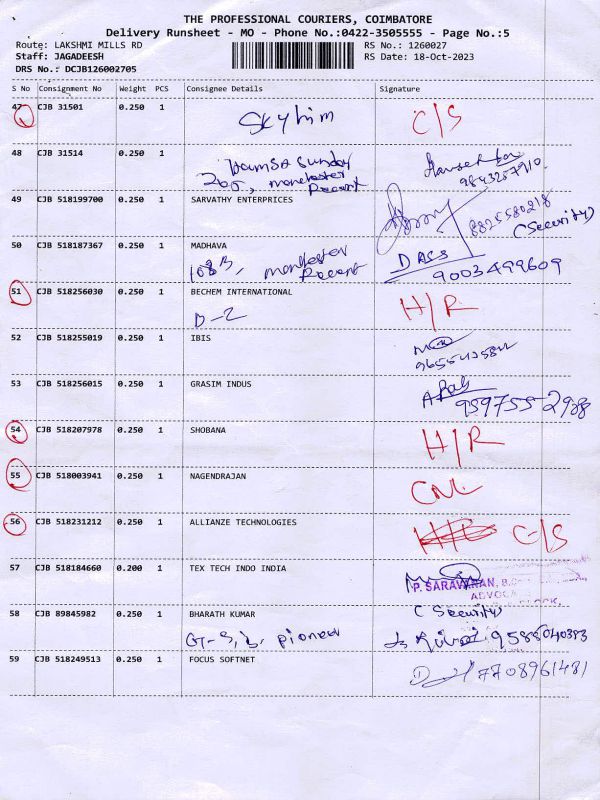 THE PROFESSIONAL COURIERS, COIMBATORE
Delivery Runsheet - MO - Phone No.:0422-3505555 - Page No.:5
Route: LAKSHMI MILLS RD RS No.: 1260027
Staff: JAGADEESH RS Date: 18-Oct-2023
DRS No.: DCJB126002705
S No Consignment No Weight PCS Consignee Details Signature
47 CJB 31501 0.250 1
Skyhim C/S
48 CJB 31514 0.250 1
Hamsa Sunday
265, manchester 9843257910
Recent
49 CJB 518199700 0.250 1 SARVATHY ENTERPRICES
8825580218
(Security)
50 CJB 518187367 0.250 1 MADHAVA
108 B, manchester DASS
Recent 9003499609
51 CJB 518256030 0.250 1 BECHEM INTERNATIONAL H/R
D-2
52 CJB 518255019 0.250 1 IBIS
53 CJB 518256015 0.250 1 GRASIM INDUS
9597552928
54 CJB 518207978 0.250 1 SHOBANA H/R
55 CJB 518003941 0.250 1 NAGENDRAJAN CNL
56 CJB 518231212 0.250 1 ALLIANZE TECHNOLOGIES C/S
57 CJB 518184660 0.200 1 TEX TECH INDO INDIA
P. SARAVANAN,
58 CJB 89845982 0.250 1 BHARATH KUMAR (Security)
pioneer 9585040383
59 CJB 518249513 0.250 1 FOCUS SOFTNET
7708961481